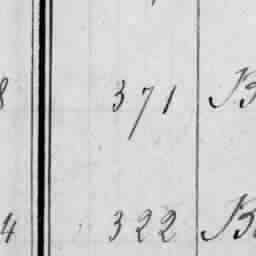 8 371 B
4 322 B